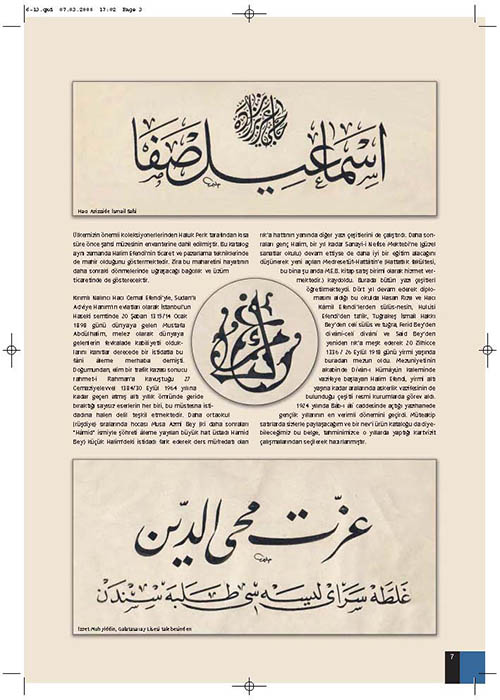 6-13.qxd 07.03.2006 17:02 Page 3
حاجی عزیززاده
اسماعیل صفا
Hacı Azizzâde İsmail Safâ
Ülkemizin önemli koleksiyonerlerinden Haluk Perk tarafından kısa
süre önce şahsi müzesinin envanterine dahil edilmiştir. Bu katalog
aynı zamanda Halim Efendi'nin ticaret ve pazarlama tekniklerinde
de mahir olduğunu göstermektedir. Zira bu maharetini hayatının
daha sonraki dönemlerinde uğraşacağı bağcılık ve üzüm
ticaretinde de gösterecektir.
Kırımlı Nalıncı Hacı Cemal Efendi'yle, Sudan'lı
Adviye Hanım'ın evlatları olarak İstanbul'un
Haseki semtinde 20 Şaban 1315/14 Ocak
1898 günü dünyaya gelen Mustafa
Abdülhalim, melez olarak dünyaya
gelenlerin fevkalade kabiliyetli olduk-
larını kanıtlar derecede bir istidatla bu
fâni âleme merhaba demişti.
Doğumundan, elim bir trafik kazası sonucu
rahmet-i Rahman'a kavuştuğu 27
Cemaziyelevvel 1384/30 Eylül 1964 yılına
kadar geçen altmış altı yıllık ömründe geride
bıraktığı sayısız eserlerin her biri, bu müstesna isti-
dadına halen delil teşkil etmektedir. Daha ortaokul
(rüşdiye) sıralarında hocası Musa Azmi Bey (ki daha sonraları
"Hâmid" ismiyle şöhreti âleme yayılan büyük hat üstadı Hamid
Bey) küçük Halim'deki istidadı fark ederek ders müfredatı olan
rık'a hattının yanında diğer yazı çeşitlerini de çalıştırdı. Daha son-
raları genç Halim, bir yıl kadar Sanayi-i Nefise Mektebi'ne (güzel
sanatlar okulu) devam ettiyse de daha iyi bir eğitim alacağını
düşünerek yeni açılan Medresetü'l-Hattâtîn'e (Hattatlık Fakültesi,
bu bina şu anda M.E.B. Kitap satış birimi olarak hizmet ver-
mektedir.) kaydoldu. Burada bütün yazı çeşitleri
öğretilmekteydi. Dört yıl devam ederek diplo-
masını aldığı bu okulda Hasan Rıza ve Hacı
Kâmil Efendi'lerden sülüs-nesih, Hulûsi
Efendi'den ta'lik, Tuğrakeş İsmail Hakkı
Bey'den celi sülüs ve tuğra, Ferid Bey'den
divâni-celi divâni ve Said Bey'den
yeniden rık'a meşk ederek 20 Zilhicce
1336 / 26 Eylül 1918 günü yirmi yaşında
buradan mezun oldu. Mezuniyeti'nin
akabinde Divân-ı Hümâyûn kaleminde
vazifeye başlayan Halim Efendi, yirmi altı
yaşına kadar aralarında askerlik vazifesinin de
bulunduğu çeşitli resmi kurumlarda görev aldı.
1924 yılında Bab-ı âli caddesinde açtığı yazıhanede
gençlik yıllarının en verimli dönemini geçirdi. Müteakip
satırlarda sizlerle paylaşacağım ve bir nev'i ürün kataloğu da diye-
bileceğimiz bu belge, tahminimizce o yıllarda yaptığı kartvizit
çalışmalarından seçilerek hazırlanmıştır.
عزّت محی الدین
غلطه سرای لیسه سی طلبه سندن
İzzet Muhyiddin, Galatasaray Lisesi talebesinden
7